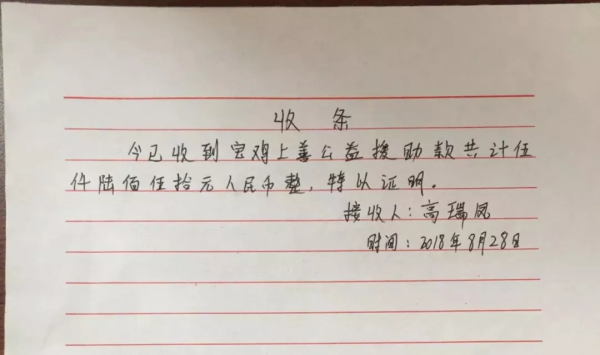 收条
今已收到宝鸡上善公益援助款共计伍
仟陆佰伍拾元人民币整，特以证明。
接收人：高瑞凤
时间：2018年8月28日